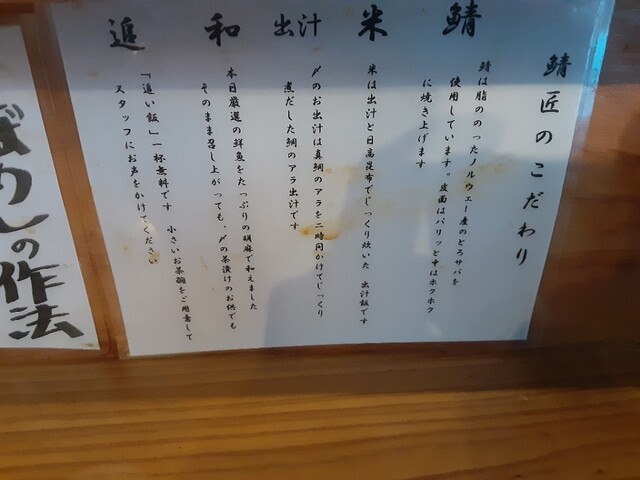 鯖匠のこだわり
鯖
鯖は脂ののったノルウェー産のとろサバを
使用しています。皮面はパリッと中はホクホク
に焼き上げます
米
米は出汁と日高昆布でじっくり炊いた 出汁飯です
出汁
〆のお出汁は真鯛のアラを二時間かけてじっくり
煮だした鯛のアラ出汁です
和
本日厳選の鮮魚をたっぷりの胡麻で和えました
そのまま召し上がっても、〆の茶漬けのお供でも
追
「追い飯」一杯無料です 小さいお茶碗をご用意して
スタッフにお声をかけてください
ばめしの作法